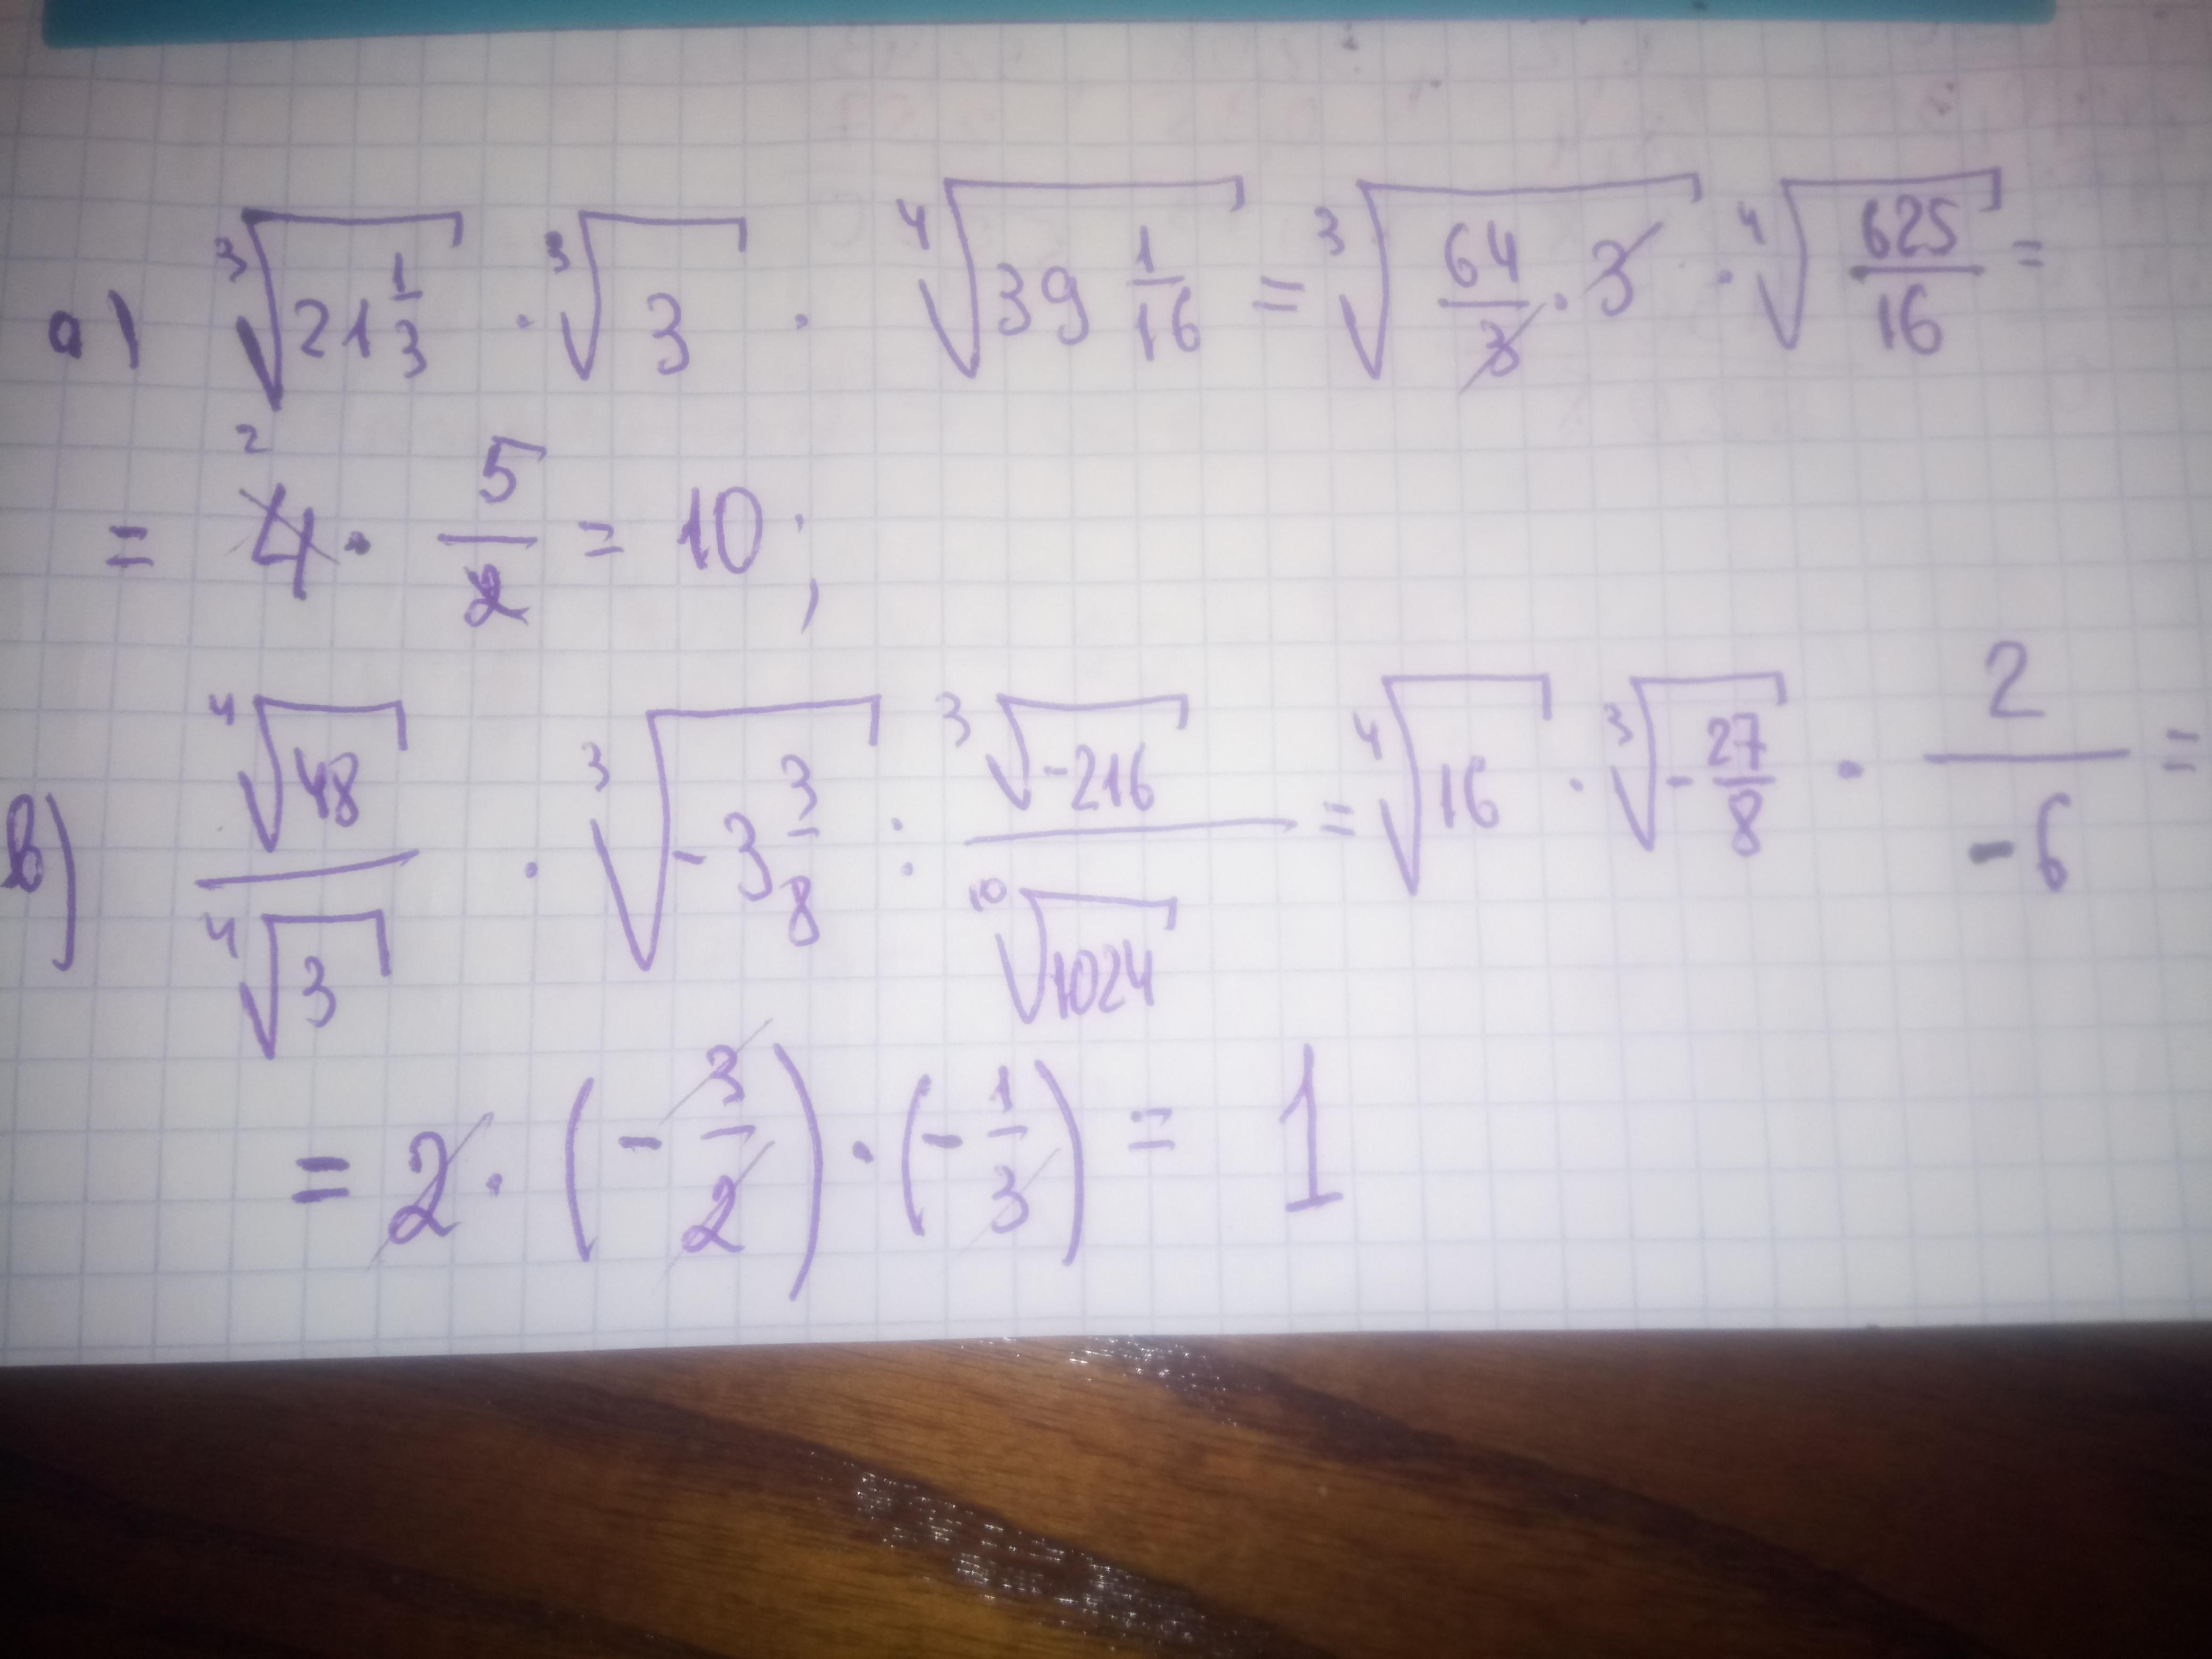 а) ∛(21 1/3) · ∛3 · ∜(39 1/16) = ∛(64/3 · 3) · ∜(625/16) =
= 4 2 · 5/2 = 10;
в) ∜48/∜3 · ∛(-3 3/8) : ∛(-216)/¹⁰√1024 = ∜16 · ∛(-27/8) · 2/-6 =
= 2 · (-3/2) · (-1/3) = 1